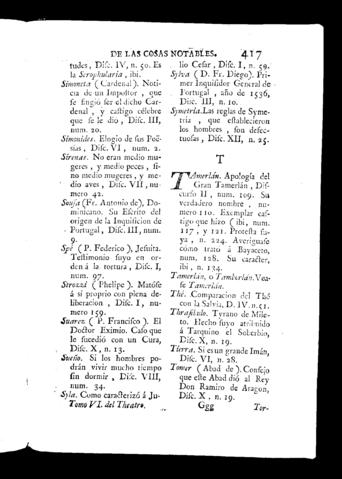 DE LAS COSAS NOTABLES. 417
tudes, Disc. IV, n. 50. Es
la Scrophularia, ibi.
Simoneta (Cardenal). Noti-
cia de un Impostor, que
se fingió ser el dicho Car-
denal, y castigo célebre
que se le dio, Disc. III,
num. 20.
Simonides. Elogio de sus Poë-
sias, Disc. VI, num. 2.
Sirenas. No eran medio mu-
geres, y medio peces, si-
no medio mugeres, y me-
dio aves, Disc. VII, nu-
mero 42.
Sousa (Fr. Antonio de), Do-
minicano. Su Escrito del
origen de la Inquisicion de
Portugal, Disc. III, num.
9.
Spé (P. Federico), Jesuita.
Testimonio suyo en or-
den á tortura, Disc. I,
num. 97.
Strozzi (Phelipe). Matóse
á sí proprio con plena de-
liberacion, Disc. I, nu-
mero 159.
Suarez (P. Francisco). El
Doctor Eximio. Caso que
le sucedió con un Cura,
Disc. X, n. 13.
Sueño. Si los hombres po-
drán vivir mucho tiempo
sin dormir, Disc. VIII,
num. 34.
Syla. Como caracterizó á Ju-
Tomo VI. del Theatro.
lio Cesar, Disc. I, n. 59.
Sylva (D. Fr. Diego). Pri-
mer Inquisidor General de
Portugal, año de 1536,
Disc. III, n. 10.
Symetría. Las reglas de Syme-
tria, que establecieron
los hombres, son defec-
tuosas, Disc. XII, n. 25.
T
Tamerlán. Apología del
Gran Tamerlán, Dis-
curso II, num. 109. Su
verdadero nombre, nu-
mero 110. Exemplar cas-
tigo que hizo (ibi, num.
117, y 121. Protesta sa-
ya, n. 224. Averiguase
cómo trató á Bayaceto,
num. 128. Su caracter,
ibi, n. 134.
Tamerlán, o Tamberlán. Vea-
se Tamerlán.
Thé. Comparacion del Thé
con la Salvia, D. IV. n. 51.
Thrasibulo. Tyrano de Mile-
to. Hecho suyo atribuido
á Tarquino el Soberbio,
Disc. X, n. 19.
Tierra. Si es un grande Imán,
Disc. VI, n. 28.
Tomer (Abad de). Consejo
que este Abad dió al Rey
Don Ramiro de Aragon,
Disc. X, n. 19.
Ggg Tor-